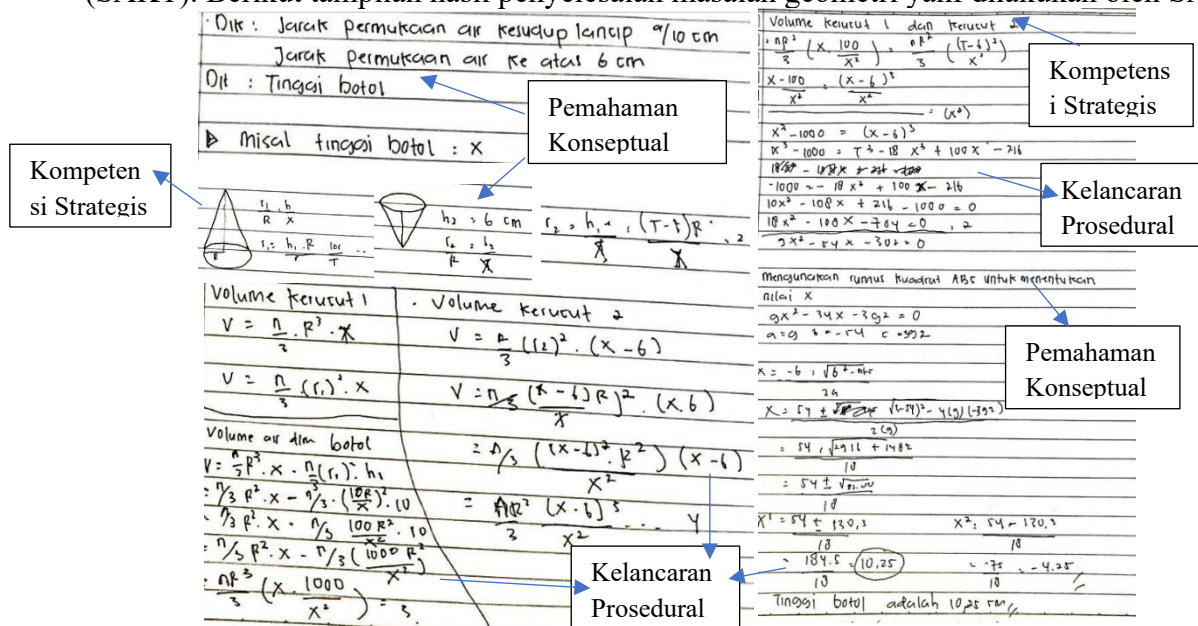 (SAKT). Berikut tampilan hasil penyelesaian masalah geometri yang dilakukan oleh
Dik : Jarak permukaan air kesudup lancip 9/10 cm
Jarak permukaan air ke atas 6 cm
Dit : Tinggi botol
▷ misal tinggi botol : x
Pemahaman
Konseptual
Kompeten
si Strategis
r₁ . h
R x
r₁ = h₁ . R
T
h₂ = 6 cm
R x
(T-t)R
Volume kerucut 1
V = π/3 . R³ . x
V = π/3 (r₁)² . x
Volume air dlm botol
V = π/3 R³ . x - π/3 (r₁)² . h₁
= π/3 R² . x - π/3 . (10R/x)² . 10
= π/3 R² . x - π/3 100R²/x² . 10
= π/3 R² . x - π/3 (1000 R²/x²)
= πR³/3 (x . 1000/x²) = 3
. Volume kerucut 2
V = π/3 (r₂)² . (x - 6)
V = π/3 ((x - 6)R/x)² . (x . 6)
= π/3 ((x-6)² . R²/x²) (x - 6)
= πR²/3 (x - 6)³/x² ... 4
Kelancaran
Prosedural
Volume kerucut 1 dan kerucut 2
πR²/3 (x . 100/x²) = πR²/3 ((T-6)³/x²)
x - 100/x² = (x - 6)³/x²
= (x²)
x² - 1000 = (x - 6)³
x³ - 1000 = T³ - 18 x³ + 100 x - 216
-1000 = - 18 x² + 100 x - 216
10x² - 108x + 216 - 1000 = 0
18x² - 108x - 784 = 0 , 2
9x² - 54x - 392 = 0
Kompetens
i Strategis
Kelancaran
Prosedural
mengunakan rumus kuadrat ABC untuk menentukan
nilai x
9x² - 54x - 392 = 0
a = 9 = -54 c = -392
2a
x = 54 ± √(-54)² - 4(9)(-392)
2(9)
= 54 , √2916 + 1482
18
= 54 ±
18
x¹ = 54 + 130,3 x² : 54 - 130,3
18 18
= 184.5 = 10,25 = -75 = -4.25
18 18
Tinggi botol adalah 10,25 cm
Pemahaman
Konseptual